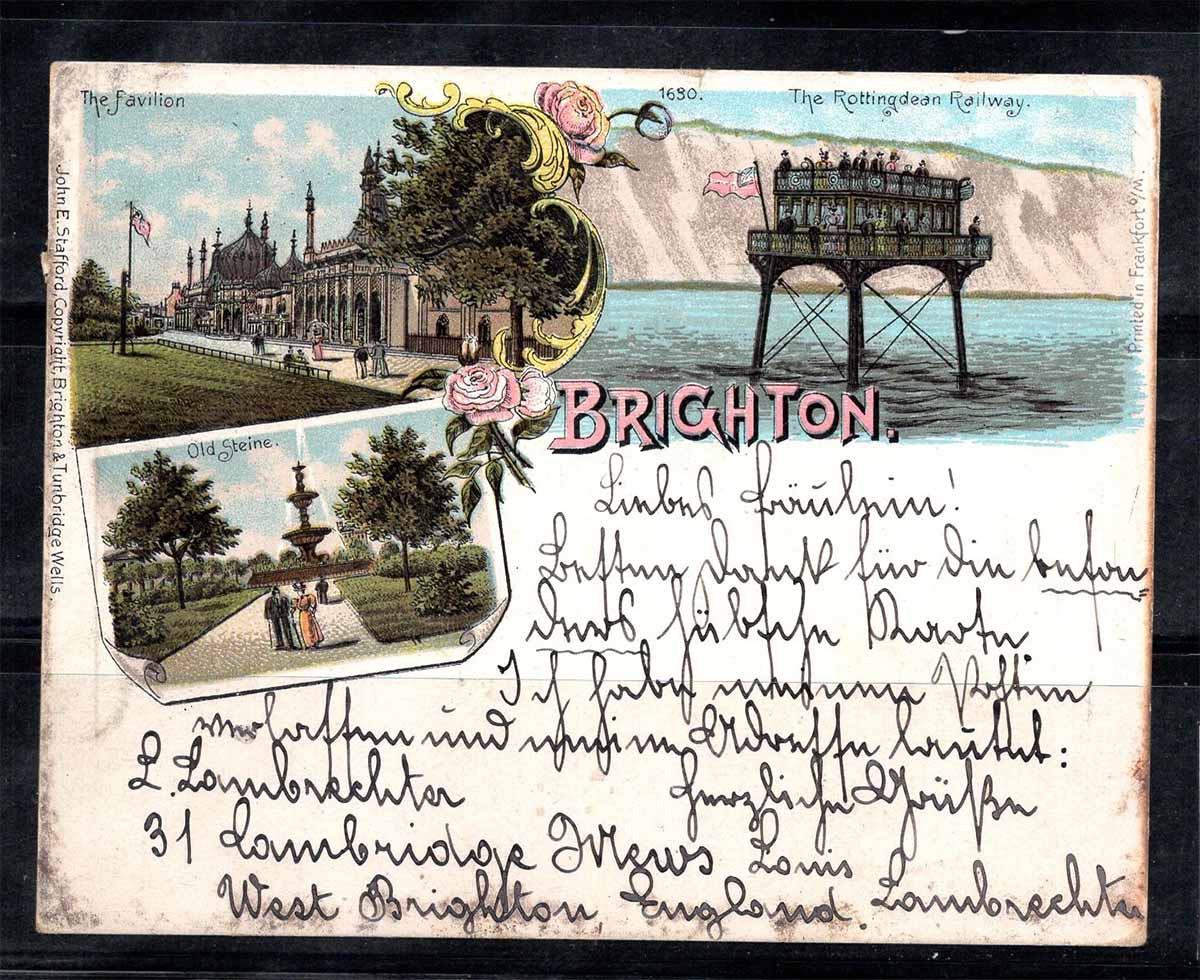 The Pavilion
1630.
The Rottingdean Railway.
John E. Stafford, Copyright, Brighton & Tunbridge Wells.
Printed in Frankfort o/M.
Old Steine.
BRIGHTON.
Liebes Fräulein!
Besten Dank für die beson
ders hübsche Karte
Ich habe meinen Posten
verlassen und meine Adresse lautet:
L. Lambrechter
Herzliche Grüße
31 Lambridge Mews Louis
West Brighton England Lambrechter